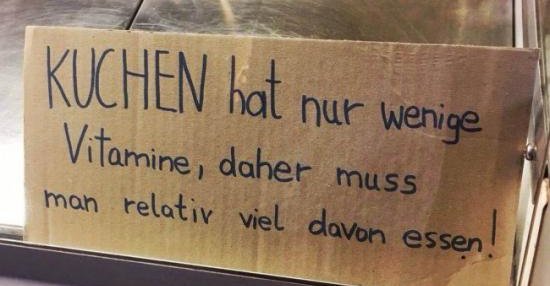 KUCHEN hat nur wenige
Vitamine, daher muss
man relativ viel davon essen!